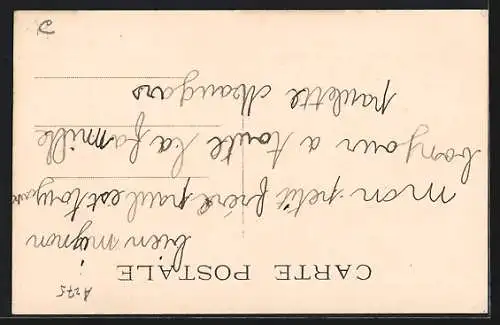 CARTE POSTALE
mon petit frére paul est toujours
bien mignon
bonjour a toute la famille
paulette
A275